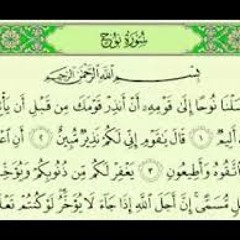 سُورَةُ نُوحٍ
بِسْمِ ٱللَّهِ ٱلرَّحْمَٰنِ ٱلرَّحِيمِ
سَلْنَا نُوحًا إِلَىٰ قَوْمِهِۦٓ أَنْ أَنذِرْ قَوْمَكَ مِن قَبْلِ أَن يَأْ
أَلِيمٌ ١ قَالَ يَٰقَوْمِ إِنِّى لَكُمْ نَذِيرٌ مُّبِينٌ ٢ أَنِ ٱعْ
تَّقُوهُ وَأَطِيعُونِ ٣ يَغْفِرْ لَكُم مِّن ذُنُوبِكُمْ وَيُؤَخِّ
لٍ مُّسَمًّى إِنَّ أَجَلَ ٱللَّهِ إِذَا جَآءَ لَا يُؤَخَّرُ لَوْ كُنتُمْ تَعْلَ